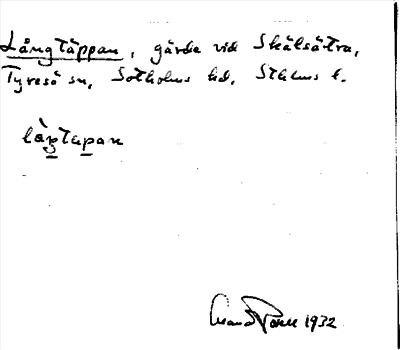 Långtäppan, gärde vid Skälsätra,
Tyresö sn, Sotholms hd, Sthlms l.
làŋtäpan
1932